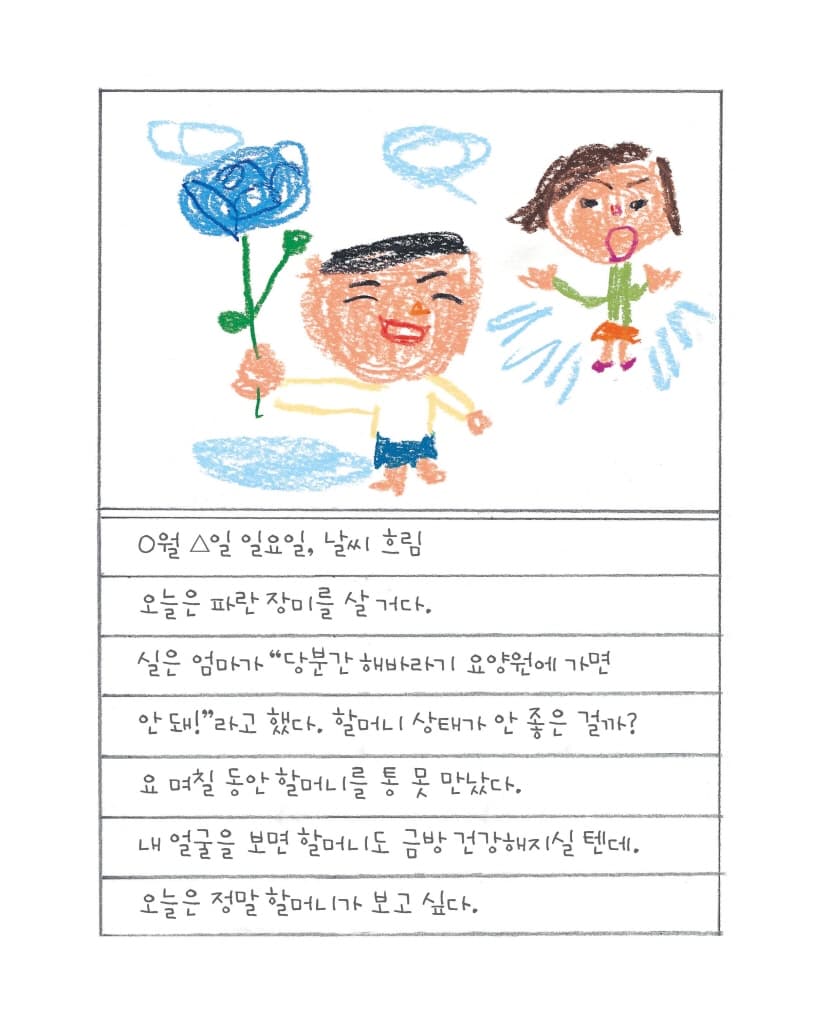 ○월 △일 일요일, 날씨 흐림
오늘은 파란 장미를 살 거다.
실은 엄마가 “당분간 해바라기 요양원에 가면
안 돼!”라고 했다. 할머니 상태가 안 좋은 걸까?
요 며칠 동안 할머니를 통 못 만났다.
내 얼굴을 보면 할머니도 금방 건강해지실 텐데.
오늘은 정말 할머니가 보고 싶다.